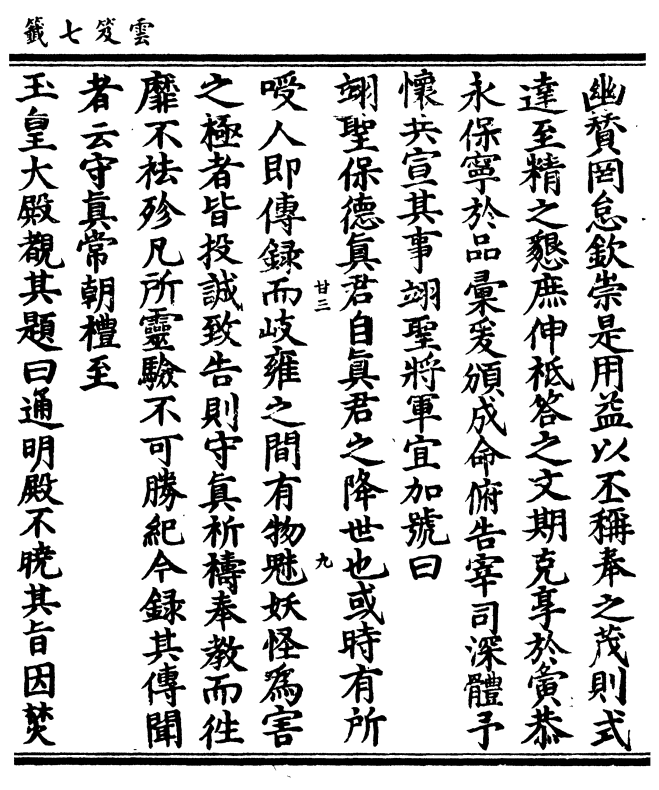 雲笈七籤
幽贊罔怠欽崇是用益以丕稱奉之茂則式
達至精之懇庶伸祗答之文期克享於夤恭
永保寧於品彙爰頒成命俯告宰司深體予
懷共宣其事翊聖將軍宜加號曰
翊聖保德真君自真君之降世也或時有所
甘三
九
嘜人即傳録而岐雍之間有物魅妖怪為害
之極者皆投誠致告則守真祈禱奉教而徃
靡不祛殄凡所靈驗不可勝紀今録其傳聞
者云守真常朝禮至
玉皇大殿覩其題曰通明殿不曉其旨因焚